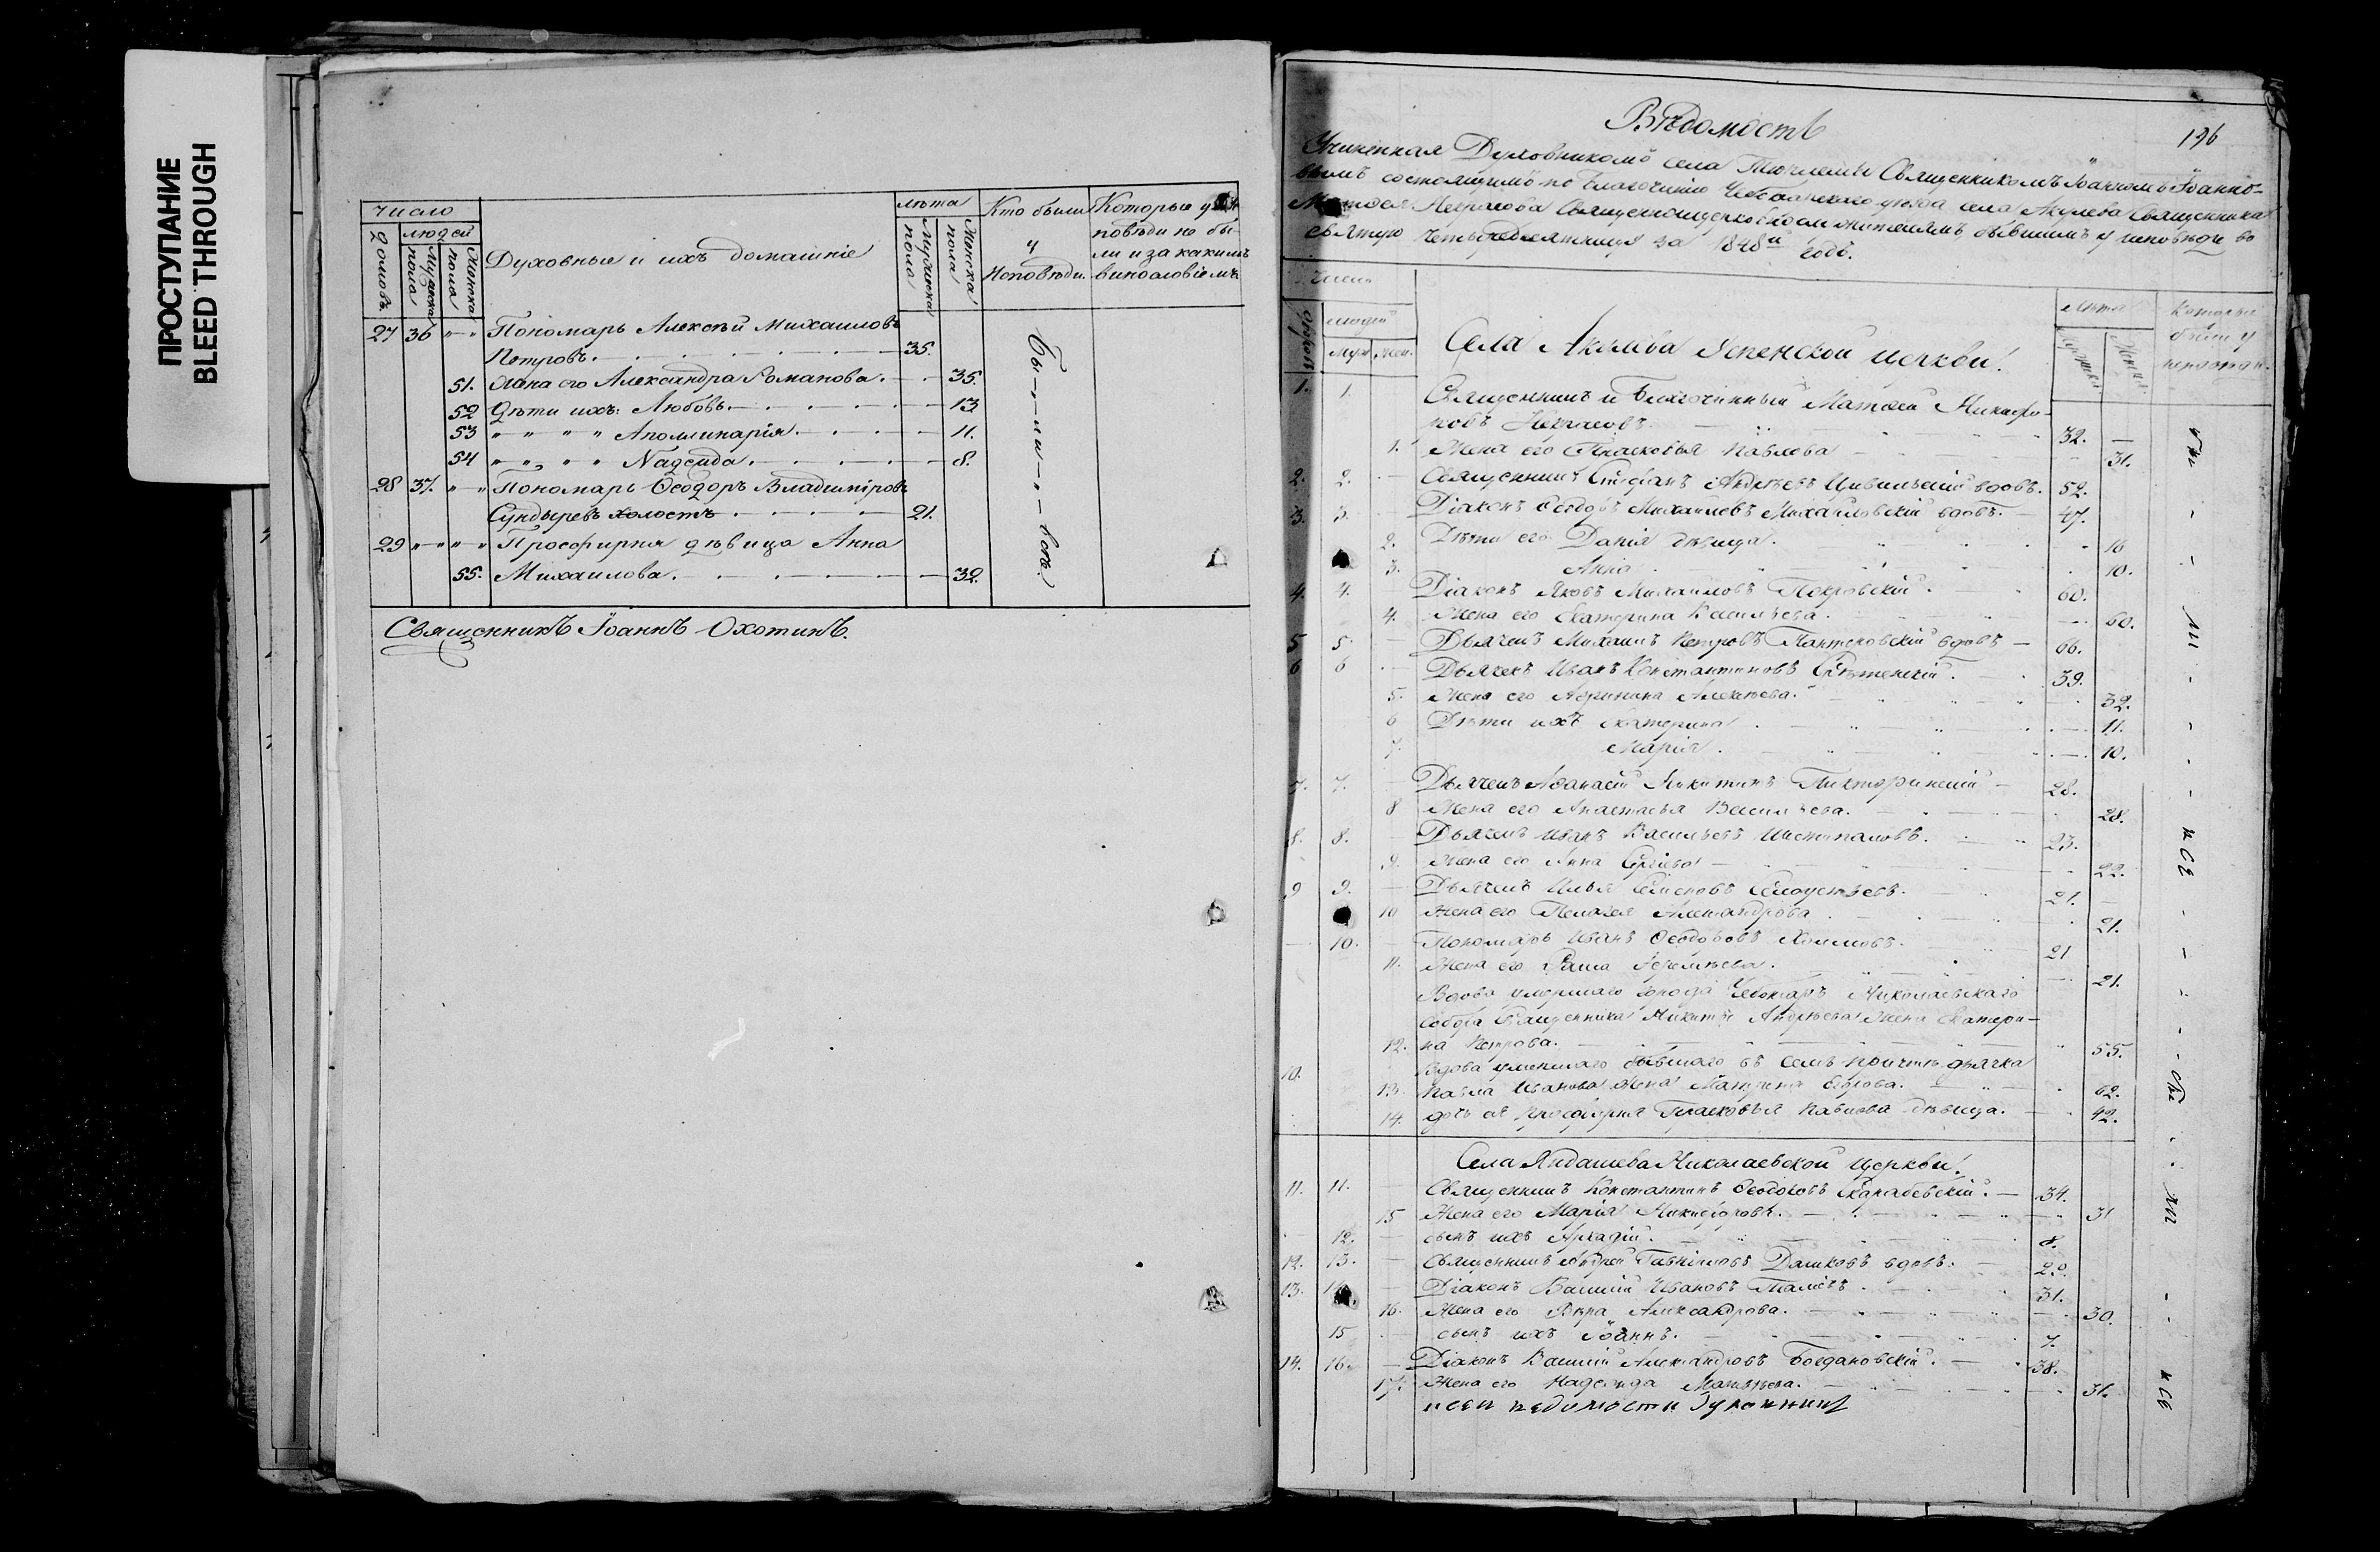 ПРОСТУПАНИЕ
BLEED THROUGH
число
людей
Домовъ.
Мужеска пола
Женска пола
Духовные и ихъ домашніе
лѣта
Мужеска пола
Женска пола
Кто были у Исповѣди.
Которые у повѣди не были и за какимъ винословіемъ.
27 36 " " Пономарь Алексѣй Михаиловъ
Петровъ. 35.
51. Жена его Александра Романова. 35.
52 Дѣти ихъ: Любовь. 13
53 " " " " Аполлинарія. 11.
54 " " " " Надежда. 8.
28 37. " " Пономарь Ѳеодоръ Владиміровъ
Сундыревъ холостъ 21.
29 " " " " Просфирня дѣвица Анна
55. Михаилова. 32.
Бы - ли - вон.
Священникъ Іоаннъ Охотинъ.
196
Вѣдомость
Учиненная Духовникомъ села Священникомъ Іоанномъ Іоанно-
вымъ состоящимъ по Благочинію уѣзда села Акулева Священника
Матѳея Некрасова Священноцерковно бывшимъ у исповѣди во
святую четыредесятницу за 1848й годъ.
Число
людей
Муж. Жен.
Села Акулева Успенской церкви.
Лѣта
Которые были у исповѣди.
1. 1. Священникъ и Благочинный Матѳей Никифо-
ровъ Некрасовъ. 32. —
1. Жена его Прасковья Павлова 31.
2. 2. Священникъ Стефанъ Андреевъ Цивильскій вдовъ. 52.
3. 3. Діаконъ Ѳеодоръ Михаиловъ Михайловскій вдовъ. 47.
2. Дѣти его Дарія дѣвица. 16
3. Анна 10.
4. 4. Діаконъ Яковъ Михаиловъ Покровскій. 60.
4. Жена его Екатерина Васильева. 60.
5 5 Дьячекъ Михаилъ Петровъ вдовъ — 66.
6 6 Дьячекъ Иванъ Константиновъ Срѣтенскій. 39.
5. Жена его Агрипина Алексѣева. 32.
6 Дѣти ихъ Екатерина 11.
7. Марія. 10.
7. 7. Дьячекъ Аѳанасій Никитинъ 28.
8 Жена его Анастасья Васильева. 28.
8. 8. Дьячекъ Иванъ Васильевъ 23.
9. Жена его Анна Сергіева 22.
9 9. Дьячекъ Илья Семеновъ 21.
10 Жена его Пелагея Александрова 21.
10. Пономарь Иванъ Ѳеодоровъ 21
11. Жена его 21.
Вдова умершаго города Чебоксаръ Николаевскаго
Собора Священника Никиты Андреева жена Екатери-
12. на Петрова. 55.
10. Вдова умершаго бывшаго въ семъ причтѣ дьячка
13. Павла Иванова жена 62.
14. дочь ея просфирня Прасковья Павлова дѣвица. 42.
Села Яндашева Николаевской церкви.
11. 11. Священникъ Константинъ Ѳеодоровъ 34.
15 Жена его Марія Никифорова. 31
12. сынъ ихъ Аркадій. 8.
12. 13. Священникъ Андрей вдовъ. 29.
13. 14. Діаконъ Василій Ивановъ 31.
16. Жена его Вѣра Александрова. 30.
15 сынъ ихъ Іоаннъ. 7.
14. 16. Діаконъ Василій Александровъ Богдановскій. 38.
17. Жена его Надежда Матвѣева. 31.